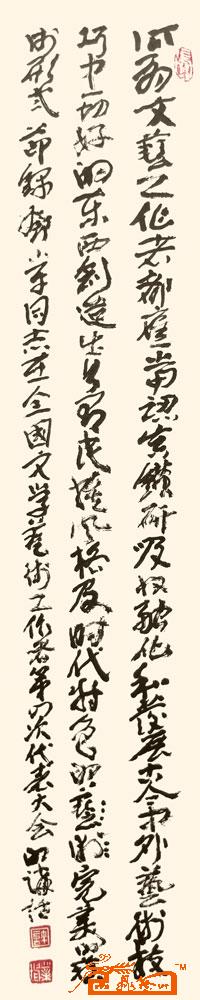 所有文艺工作者都应当认真钻研吸收融化和发展古今中外艺术技
巧中一切好的东西创造出具有民族风格及时代特色的完美的艺
术形式 节录邓小平同志在全国文学艺术工作者第四次代表大会的